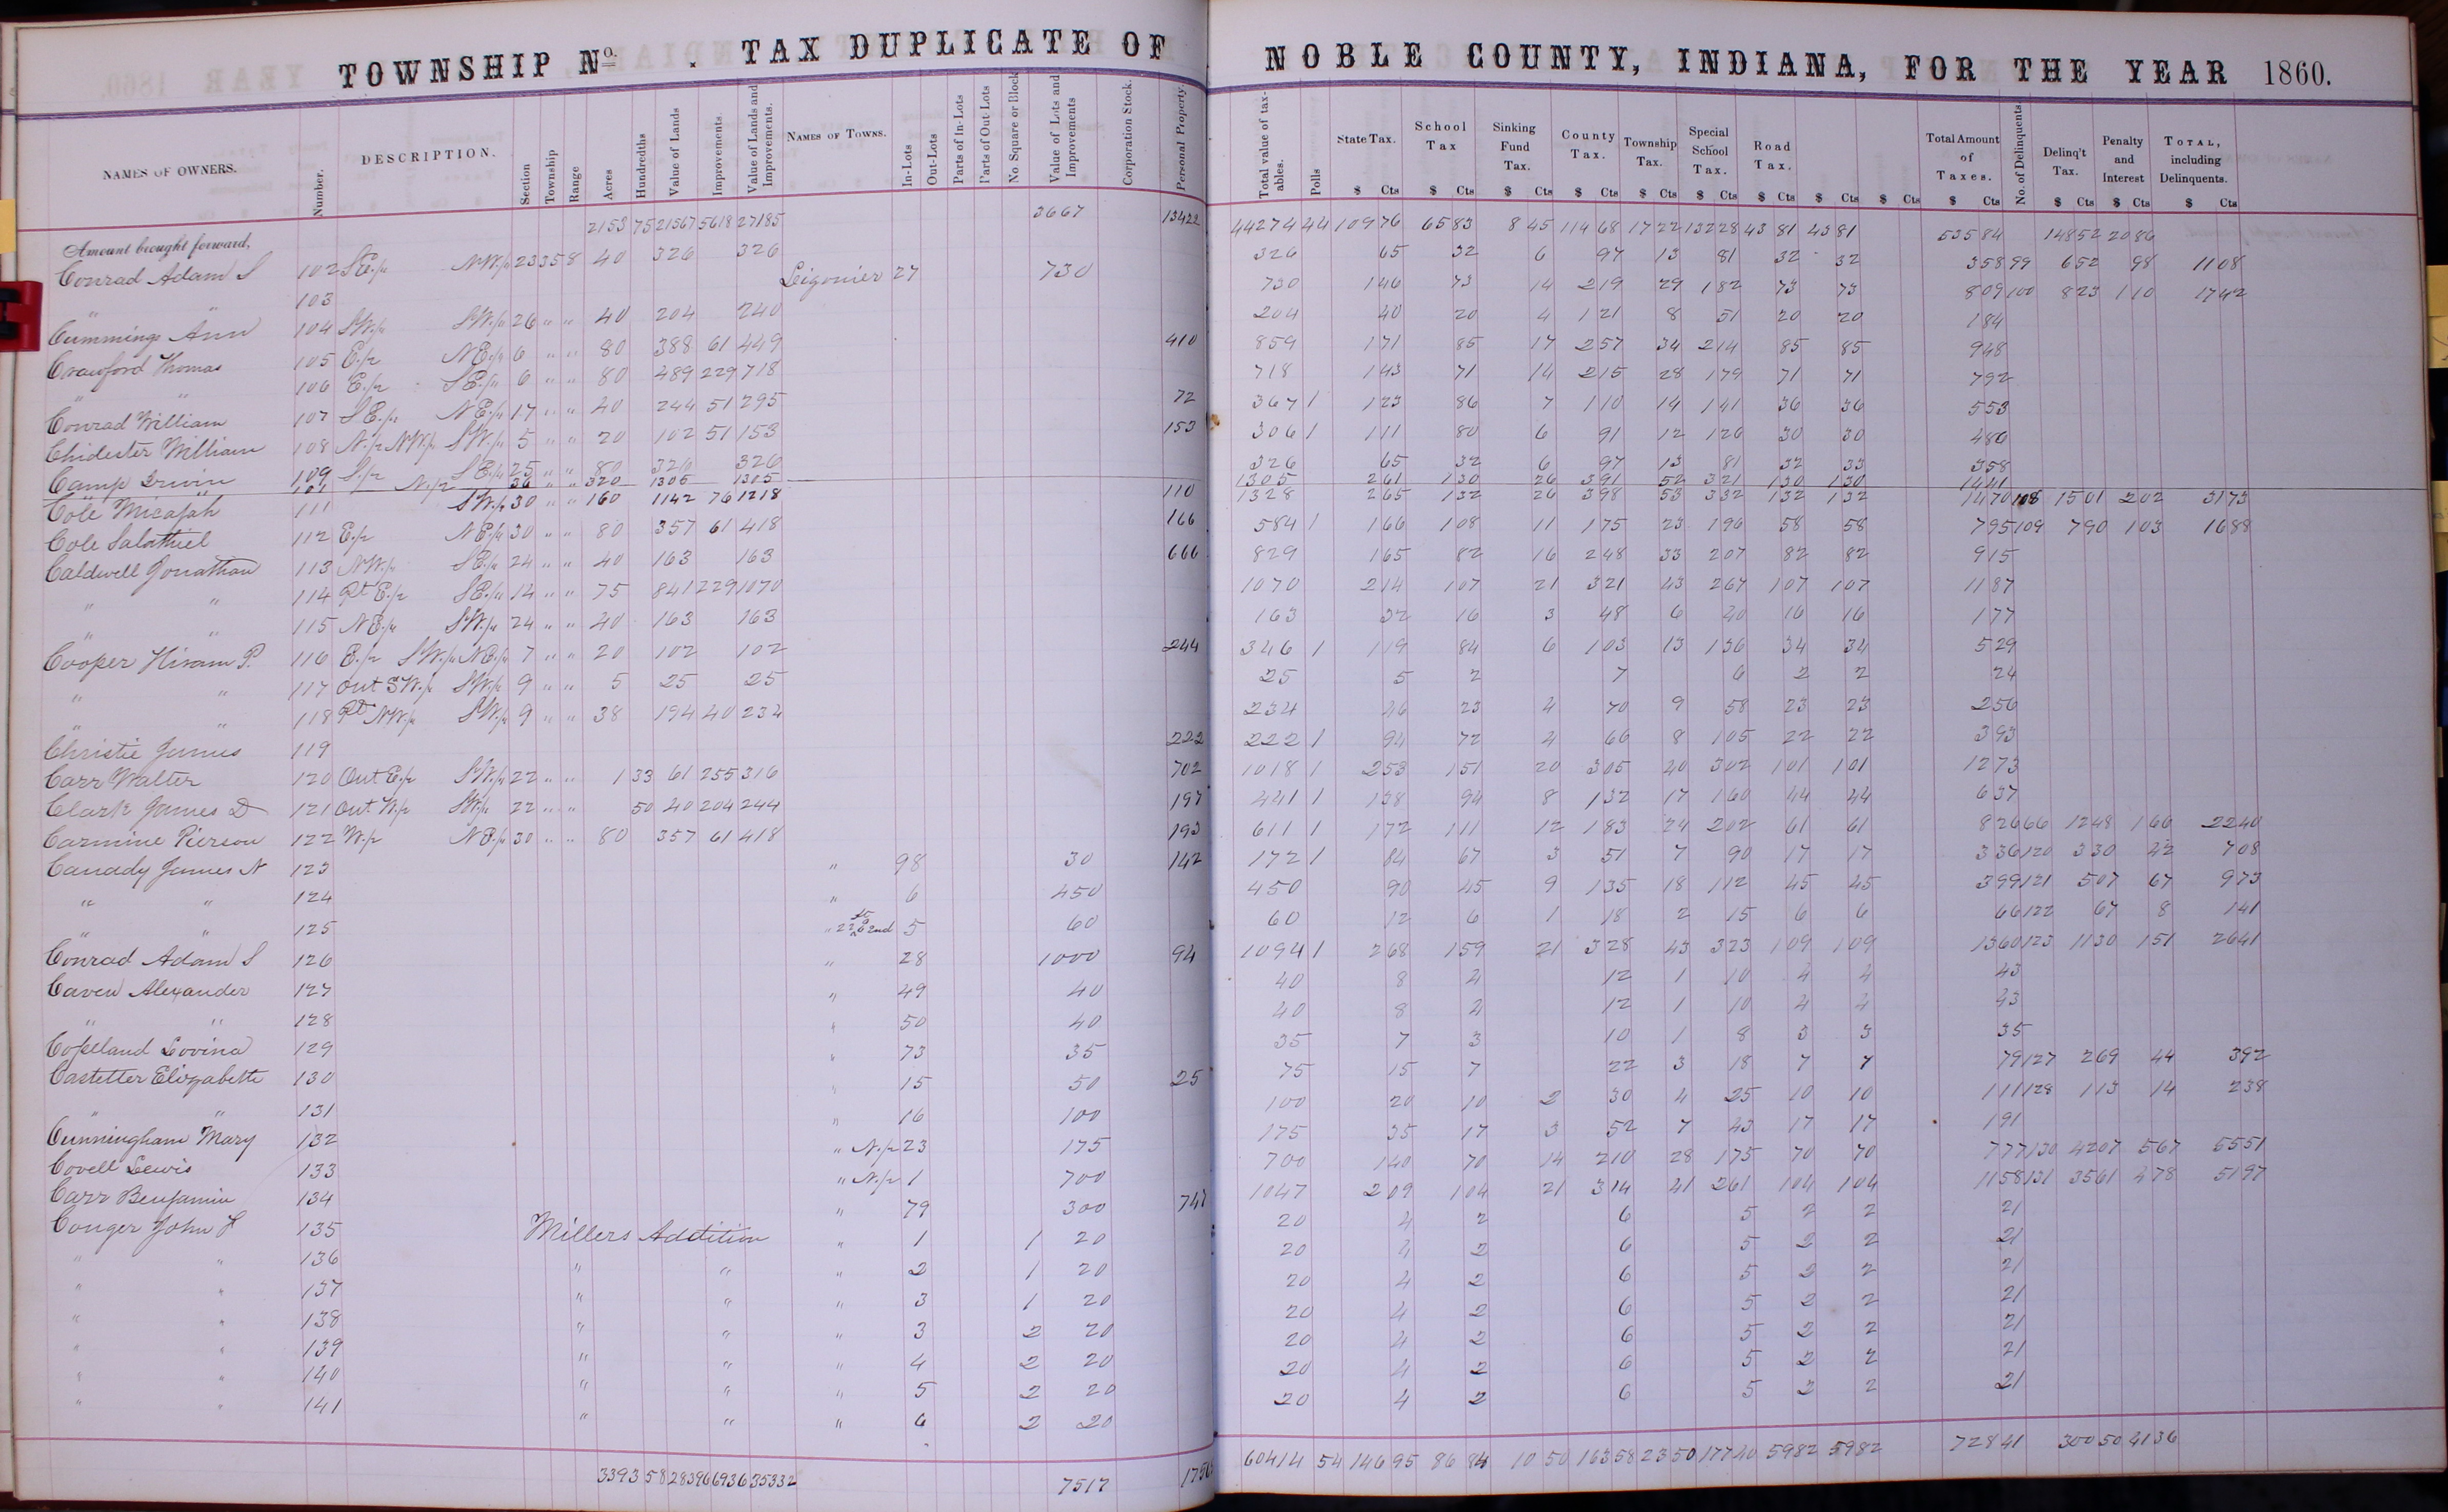 TOWNSHIP No. . TAX DUPLICATE OF NOBLE COUNTY, INDIANA, FOR THE YEAR 1860.
NAMES OF OWNERS. Number. DESCRIPTION. Section Township Range Acres Hundredths Value of Lands Improvements. Value of Lands and Improvements. NAMES OF TOWNS. In-Lots Out-Lots Parts of In-Lots Parts of Out-Lots No Square or Block Value of Lots and Improvements Corporation Stock. Personal Property. Total value of taxables. Polls State Tax. School Tax Sinking Fund Tax. County Tax. Township Tax. Special School Tax. Road Tax. Total Amount of Taxes. No. of Delinquents Delinq't Tax. Penalty and Interest TOTAL, including Delinquents.
$ Cts $ Cts $ Cts $ Cts $ Cts $ Cts $ Cts $ Cts $ Cts $ Cts $ Cts $ Cts $ Cts
Amount brought forward, 2153 75 21567 5618 27185 3667 13422 44274 44 109 76 65 83 8 45 114 68 17 22 132 28 43 81 43 81 535 84 148 52 20 86
Conrad Adam S 102 SE 1/4 NW 1/4 23 35 8 40 326 326 326 65 32 6 97 13 81 32 32 358 99 652 98 1108
" " 103 Ligonier 27 730 730 146 73 14 219 29 182 73 73 809 100 823 110 1742
Cummings Ann 104 SW 1/4 SW 1/4 26 " " 40 204 240 204 40 20 4 121 8 51 20 20 184
Crawford Thomas 105 E 1/2 NE 1/4 6 " " 80 388 61 449 410 859 171 85 17 257 34 214 85 85 948
" " 106 E 1/2 SE 1/4 6 " " 80 489 229 718 718 143 71 14 215 28 179 71 71 792
Conrad William 107 SE 1/4 NE 1/4 17 " " 40 244 51 295 72 367 1 123 86 7 110 14 141 36 36 553
Chidester William 108 N 1/2 NW 1/4 SW 1/4 5 " " 20 102 51 153 153 306 1 111 80 6 91 12 126 30 30 486
Camp Irwin 109 S 1/2 SE 1/4 25 " " 80 326 326 326 65 32 6 97 13 81 32 33 358
N 1/2 36 " " 320 1305 1305 1305 261 130 26 391 52 321 130 130 1441
Cole Micajah 111 SW 1/4 30 " " 160 1142 76 1218 110 1328 265 132 26 398 53 332 132 132 1470 108 1501 202 3173
Cole Salathiel 112 E 1/2 NE 1/4 30 " " 80 357 61 418 166 584 1 166 108 11 175 23 196 58 58 795 109 790 103 1688
Caldwell Jonathan 113 NW 1/4 SE 1/4 24 " " 40 163 163 666 829 165 82 16 248 33 207 82 82 915
" " 114 Pt E 1/2 SE 1/4 14 " " 75 841 229 1070 1070 214 107 21 321 43 267 107 107 1187
" " 115 NE 1/4 SW 1/4 24 " " 40 163 163 163 32 16 3 48 6 40 16 16 177
Cooper Hiram P. 116 E 1/2 SW 1/4 NE 1/4 7 " " 20 102 102 244 346 1 119 84 6 103 13 136 34 34 529
" " 117 Out SW 1/4 SW 1/4 9 " " 5 25 25 25 5 2 7 6 2 2 24
" " 118 Pt NW 1/4 SW 1/4 9 " " 38 194 40 234 234 46 23 4 70 9 58 23 23 256
Christie James 119 222 222 1 94 72 4 66 8 105 22 22 393
Carr Walter 120 Out E 1/2 SW 1/4 22 " " 1 33 61 255 316 702 1018 1 253 151 20 305 40 302 101 101 1273
Clark James D 121 Out W 1/2 SW 1/4 22 " " 50 40 204 244 197 441 1 138 94 8 132 17 160 44 44 637
Carmine Pierson 122 W 1/2 NE 1/4 30 " " 80 357 61 418 193 611 1 172 111 12 183 24 202 61 61 826 66 1248 166 2240
Canady James N 123 " 98 30 142 172 1 84 67 3 51 7 90 17 17 336 120 330 42 708
" " 124 " 6 450 450 90 45 9 135 18 112 45 45 399 121 507 67 973
" " 125 " 2nd 5 60 60 12 6 1 18 2 15 6 6 66 122 67 8 141
Conrad Adam S 126 " 28 1000 94 1094 1 268 159 21 328 43 323 109 109 1360 123 1130 151 2641
Caven Alexander 127 " 49 40 40 8 4 12 1 10 4 4 43
" " 128 " 50 40 40 8 4 12 1 10 4 4 43
Copelland Lovina 129 " 73 35 35 7 3 10 1 8 3 3 35
Castetter Elizabeth 130 " 15 50 25 75 15 7 22 3 18 7 7 79 127 269 44 392
" " 131 " 16 100 100 20 10 2 30 4 25 10 10 111 128 113 14 238
Cunningham Mary 132 " N 1/2 23 175 175 35 17 3 52 7 43 17 17 191
Covell Lewis 133 " N 1/2 1 700 700 140 70 14 210 28 175 70 70 777 130 4207 567 5551
Carr Benjamin 134 " 79 300 747 1047 209 104 21 314 41 261 104 104 1158 131 3561 478 5197
Conger John L 135 Millers Addition " 1 1 20 20 4 2 6 5 2 2 21
" " 136 " " " 2 1 20 20 4 2 6 5 2 2 21
" " 137 " " " 3 1 20 20 4 2 6 5 2 2 21
" " 138 " " " 3 2 20 20 4 2 6 5 2 2 21
" " 139 " " " 4 2 20 20 4 2 6 5 2 2 21
" " 140 " " " 5 2 20 20 4 2 6 5 2 2 21
" " 141 " " " 6 2 20 20 4 2 6 5 2 2 21
3393 58 28396 6936 35332 7517 60414 54 146 95 86 84 10 50 163 58 23 50 177 40 59 82 59 82 728 41 300 50 41 36